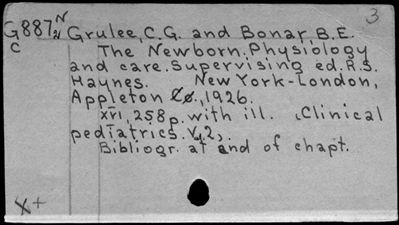 3
G887 N Grulee, C.G. and Bonar B.E.
C The Newborn. Physiology
and care. Supervising ed. R.S.
Haynes. New York-London,
Appleton Co., 1926.
XVI, 258p. with ill. (Clinical
pediatrics. V.2).
Bibliogr. at end of chapt.
X+